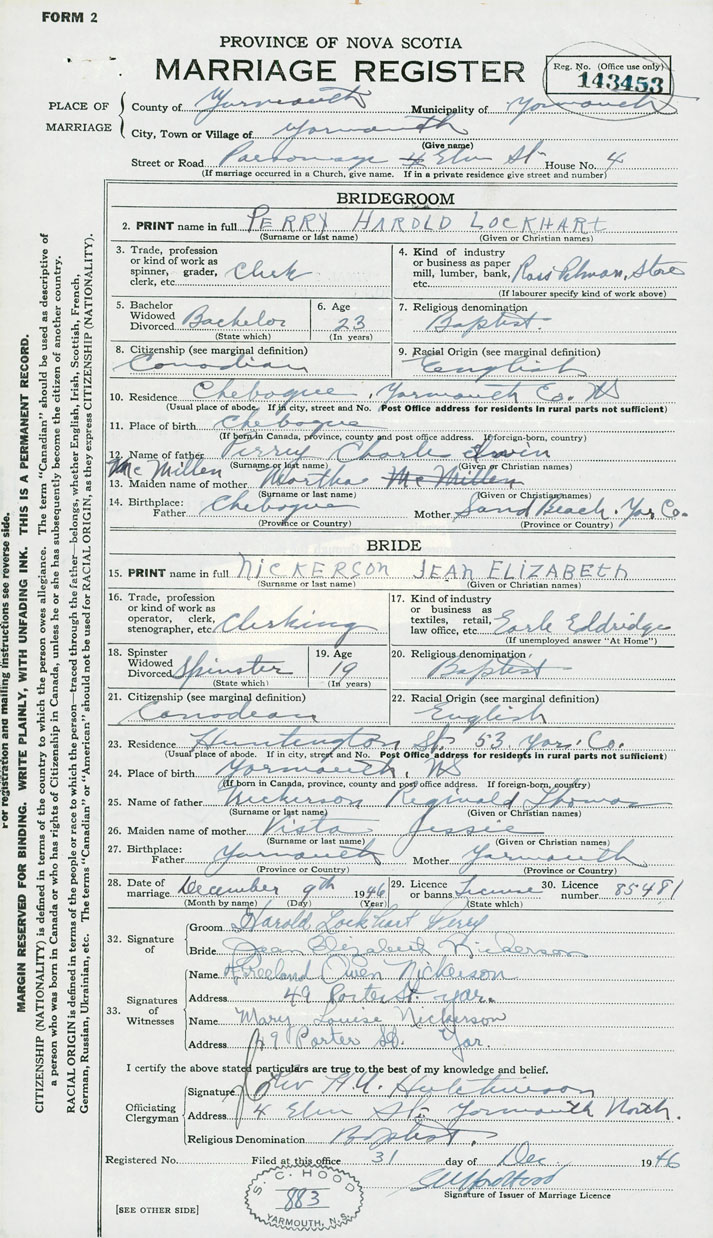 FORM 2
PROVINCE OF NOVA SCOTIA
MARRIAGE REGISTER
Reg. No. (Office use only)
143453
PLACE OF MARRIAGE
County of Yarmouth Municipality of Yarmouth
City, Town or Village of Yarmouth
(Give name)
Street or Road Parsonage 4 Elm St. House No. 4
(If marriage occurred in a Church, give name. If in a private residence give street and number)
BRIDEGROOM
2. PRINT name in full PERRY HAROLD LOCKHART
(Surname or last name) (Given or Christian names)
3. Trade, profession or kind of work as spinner, grader, clerk, etc. Clerk
4. Kind of industry or business as paper mill, lumber, bank, etc. Store
(If labourer specify kind of work above)
5. Bachelor Widowed Divorced Bachelor
(State which)
6. Age 23
(In years)
7. Religious denomination
Baptist.
8. Citizenship (see marginal definition)
Canadian
9. Racial Origin (see marginal definition)
English
10. Residence Chebogue, Yarmouth Co. NS
(Usual place of abode. If in city, street and No. Post Office address for residents in rural parts not sufficient)
11. Place of birth Chebogue
(If born in Canada, province, county and post office address. If foreign-born, country)
12. Name of father Perry Charles Irvin
(Surname or last name) (Given or Christian names)
McMillen
13. Maiden name of mother Martha McMillen
(Surname or last name) (Given or Christian names)
14. Birthplace: Father Chebogue Mother Sand Beach. Yar Co.
(Province or Country) (Province or Country)
BRIDE
15. PRINT name in full NICKERSON JEAN ELIZABETH
(Surname or last name) (Given or Christian names)
16. Trade, profession or kind of work as operator, clerk, stenographer, etc. Clerking
17. Kind of industry or business as textiles, retail, law office, etc. Earle Eldridge
(If unemployed answer "At Home")
18. Spinster Widowed Divorced Spinster
(State which)
19. Age 19
(In years)
20. Religious denomination
Baptist
21. Citizenship (see marginal definition)
Canadian
22. Racial Origin (see marginal definition)
English
23. Residence Huntington St. 53 Yar. Co.
(Usual place of abode. If in city, street and No. Post Office address for residents in rural parts not sufficient)
24. Place of birth Yarmouth, NS
(If born in Canada, province, county and post office address. If foreign-born, country)
25. Name of father Nickerson Reginald Thomas
(Surname or last name) (Given or Christian names)
26. Maiden name of mother Jessie
(Surname or last name) (Given or Christian names)
27. Birthplace: Father Yarmouth Mother Yarmouth
(Province or Country) (Province or Country)
28. Date of marriage December 9th 1946
(Month by name) (Day) (Year)
29. Licence or banns License
(State which)
30. Licence number 85481
32. Signature of
Groom Harold Lockhart Perry
Bride Jean Elizabeth Nickerson
33. Signatures of Witnesses
Name Freeland Owen Nickerson
Address 49 Porter St. Yar.
Name Mary Louise Nickerson
Address 49 Porter St. Yar.
I certify the above stated particulars are true to the best of my knowledge and belief.
Officiating Clergyman
Signature Rev H.U. Hutchinson
Address 4 Elm St. Yarmouth North.
Religious Denomination Baptist.
Registered No. Filed at this office 31 day of Dec 1946
Signature of Issuer of Marriage Licence
S. C. HOOD
883
YARMOUTH, N.S.
[SEE OTHER SIDE]
For registration and mailing instructions see reverse side.
MARGIN RESERVED FOR BINDING. WRITE PLAINLY, WITH UNFADING INK. THIS IS A PERMANENT RECORD.
CITIZENSHIP (NATIONALITY) is defined in terms of the country to which the person owes allegiance. The term "Canadian" should be used as descriptive of
a person who was born in Canada or who has rights of Citizenship in Canada, unless he or she has subsequently become the citizen of another country.
RACIAL ORIGIN is defined in terms of the people or race to which the person—traced through the father—belongs, whether English, Irish, Scottish, French,
German, Russian, Ukrainian, etc. The terms "Canadian" or "American" should not be used for RACIAL ORIGIN, as they express CITIZENSHIP (NATIONALITY).